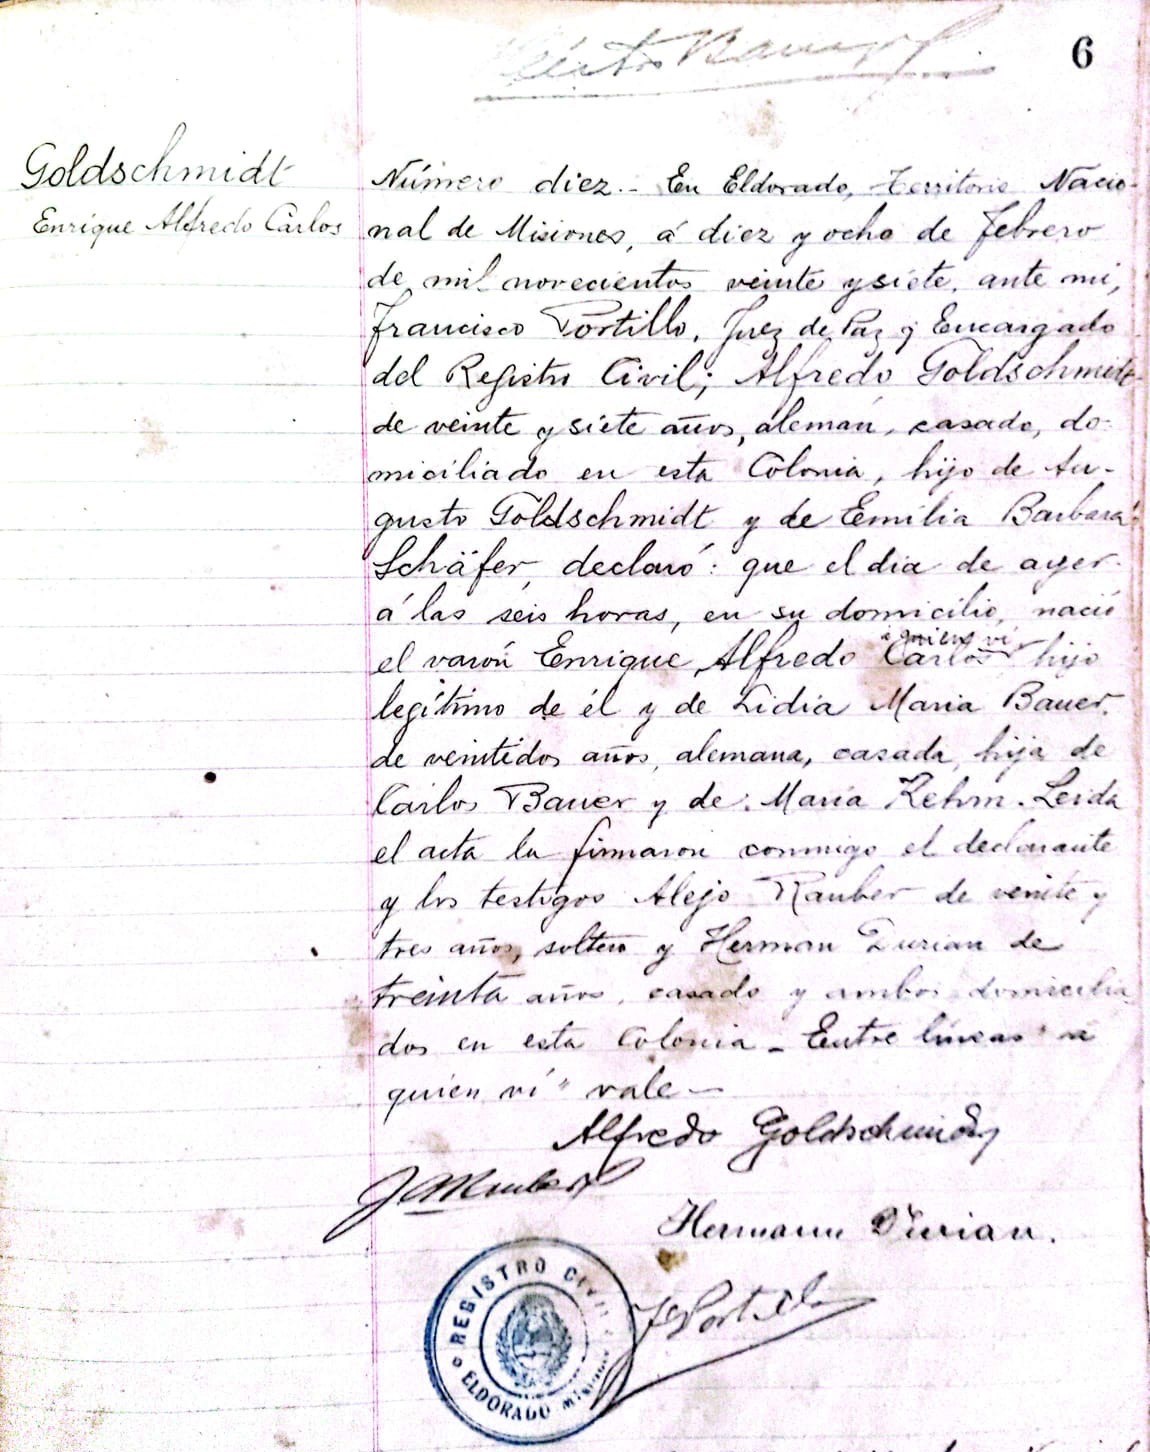 6
Goldschmidt
Enrique Alfredo Carlos
Número diez.- En Eldorado, Territorio Nacio-
nal de Misiones, á diez y ocho de Febrero
de mil novecientos veinte y siete, ante mi,
Francisco Portillo, Juez de Paz y Encargado
del Registro Civil; Alfredo Goldschmidt
de veinte y siete años, alemán, casado, do-
miciliado en esta Colonia, hijo de Au-
gusto Goldschmidt y de Emilia Barbara
Schäfer, declaró: que el dia de ayer
á las seis horas, en su domicilio, nació
á quien ví
el varón Enrique Alfredo Carlos hijo
legítimo de él y de Lidia Maria Bauer,
de veintidos años, alemana, casada, hija de
Carlos Bauer y de Maria Rehm. Leida
el acta la firmaron conmigo el declarante
y los testigos Alejo Rauber de veinte y
tres años, soltero y Herman Durian de
treinta años, casado y ambos domicilia
dos en esta Colonia - Entre líneas "a
quien ví" vale -
Alfredo Goldschmidt
Hermann Durian.
F Portillo
REGISTRO CIVIL
ELDORADO MISIONES